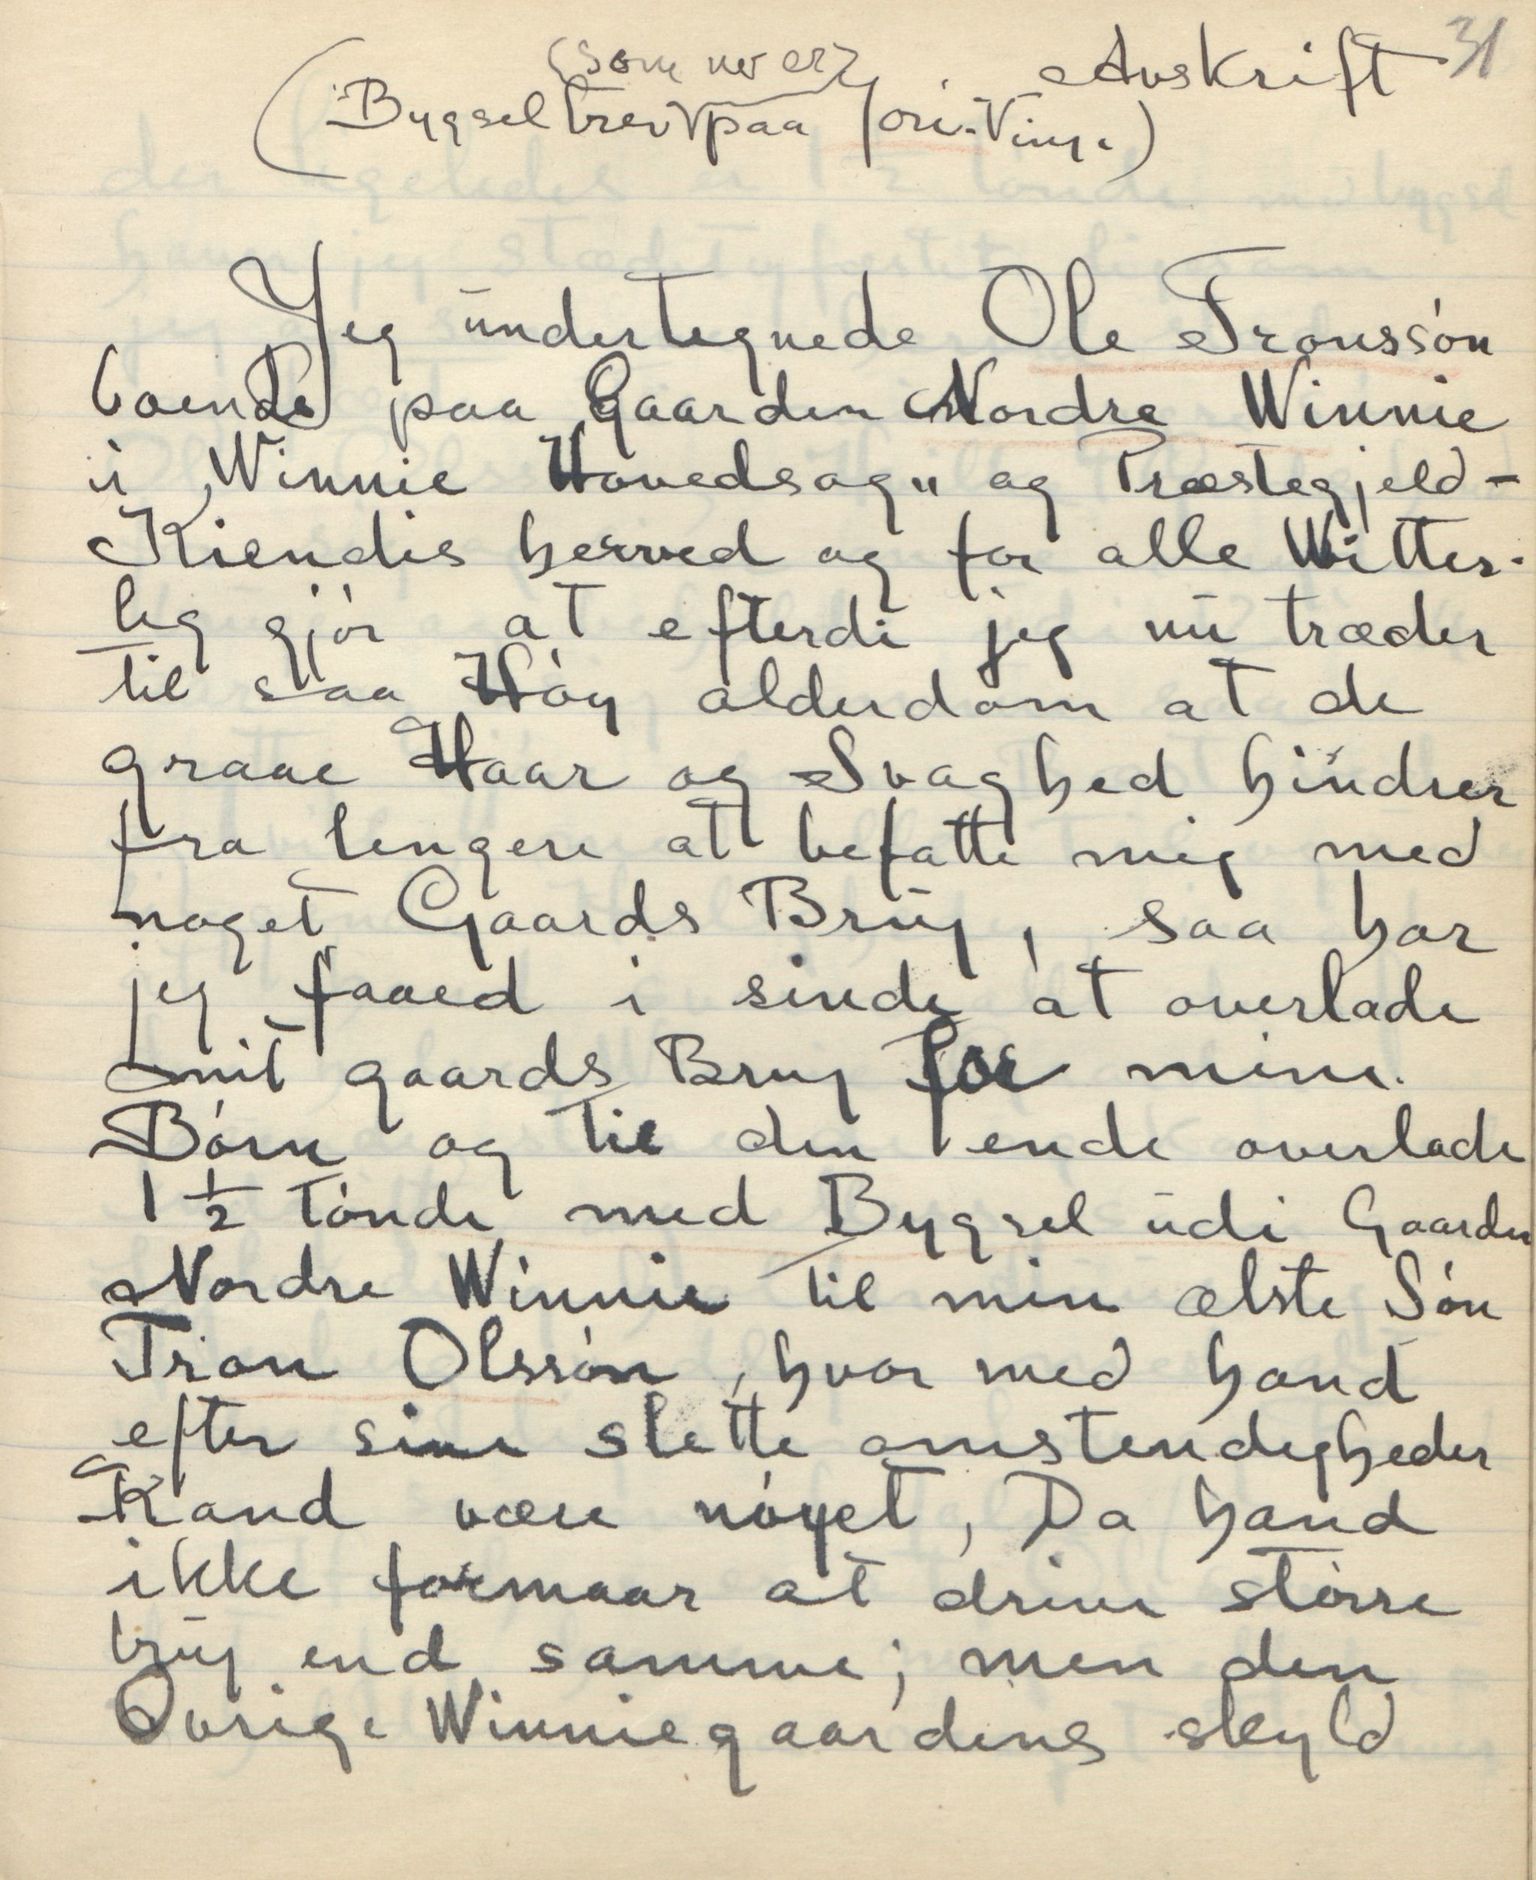 Avskrift 31
(som no er)
(Bygselbrev paa Jori-Vinje)
Jeg ündertegnede Ole Tronssón
boende paa Gaarden Nordre Winnie
i „Winnie Hovedsogn" og Præstegjeld-
Kiendis herved og for alle Witter-
lig gjór at efterdi jeg nü træder
til saa Hóy alderdom at de
graae Haar og Svaghed hindrer
fra lengere at befatte mig med
noget Gaards Brüg, saa har
jeg faaed i sinde at overlade
mit gaards Brug for mine
Bórn og til den ende overlade
1 1/2 Tónde med Bygsel üdi Gaarden
Nordre Winnie til min ælste Són
Tron Olssón, hvor med hand
efter sine slette omstendigheder
Kand være nóyet, Da hand
ikke formaar at drive stórre
brüg end samme; men den
Óvrige Winniegaardens skyld